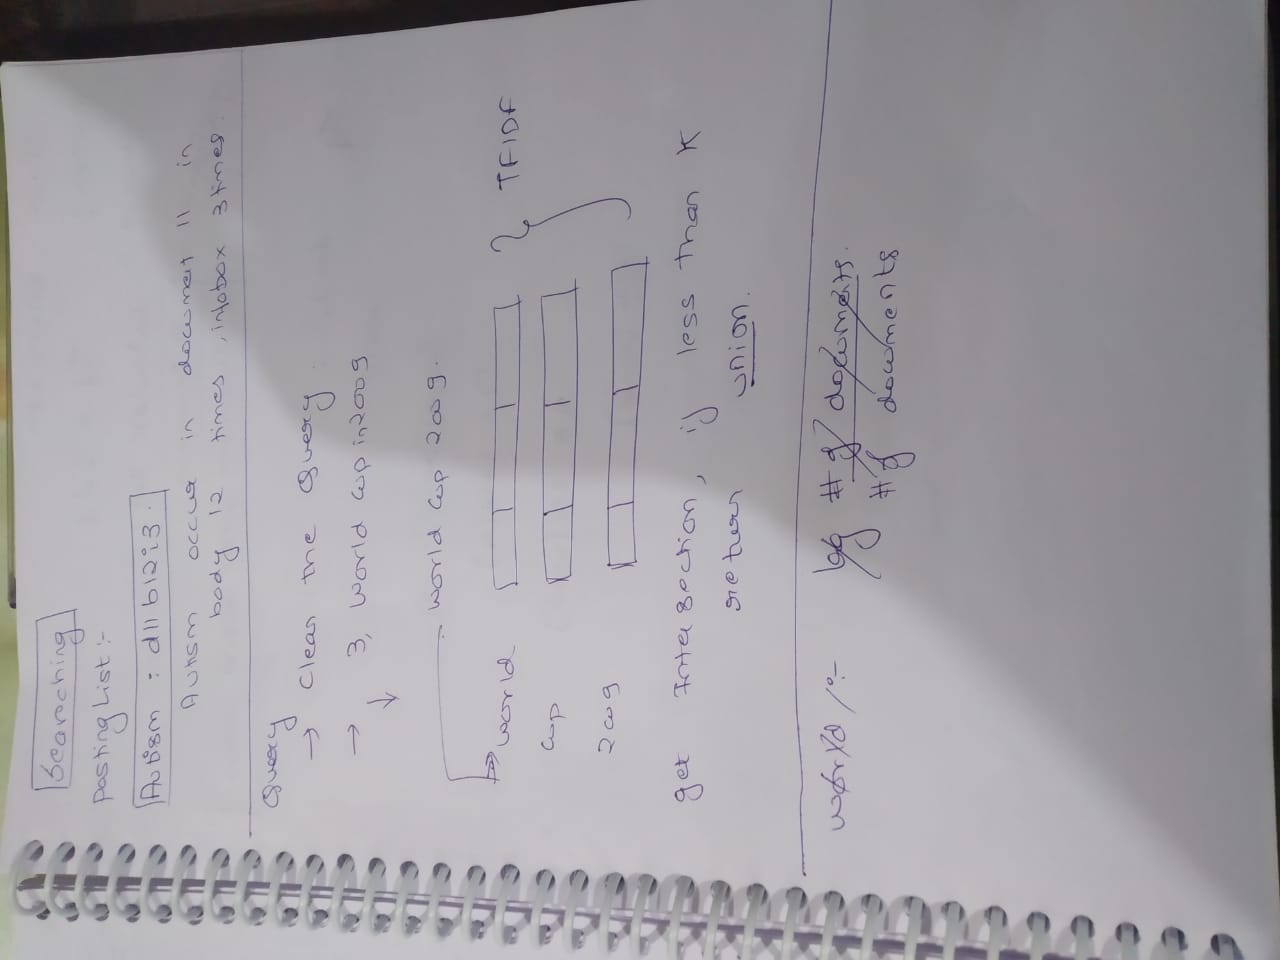 Searching
Posting List :-
Autism : d11 b12i3.
Autism occur in document 11 in
body 12 times, infobox 3 times.
Query
→ Clean the Query.
→ 3, World Cup in 2009
↓
World Cup 2009.
World
Cup
2009
TFIDF
get Intersection, if less than K
return union.
world :- log # of documents.
# of documents